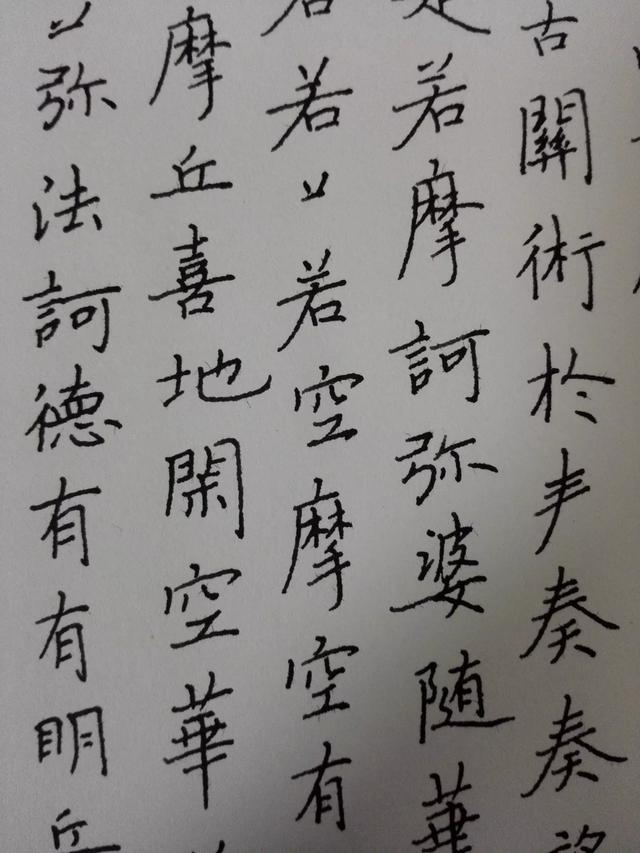 古關術於奏奏
是若摩訶弥婆随華
若若若空摩空有
摩丘喜地閑空華
弥法訶徳有有明丘